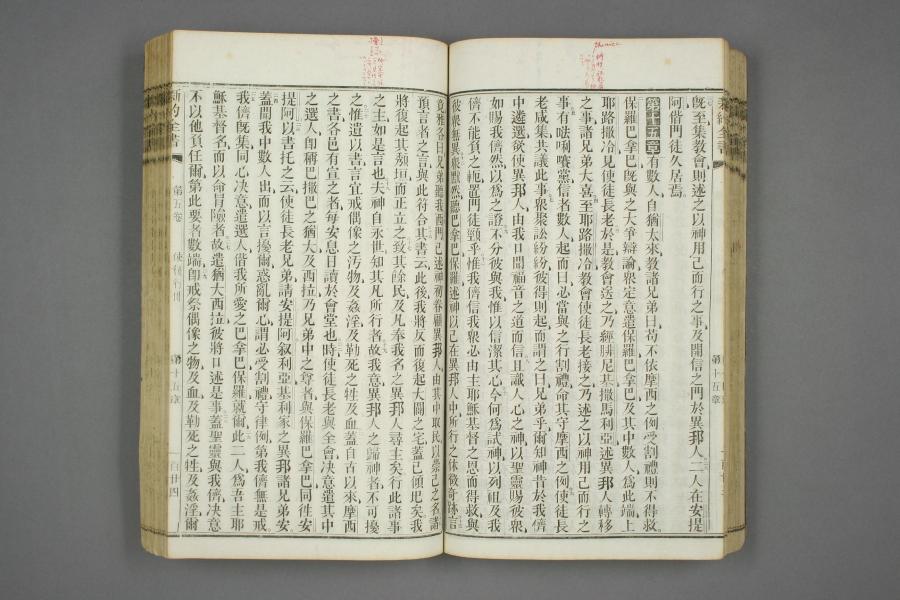 既至集教會則述之以神用己而行之事及開信之門於異邦人二人在安提
阿偕門徒久居焉
第十五章有數人自猶太來教諸兄弟曰苟不依摩西之例受割禮則不得救
保羅巴拿巴旣與之大爭辯論衆定意遣保羅拿巴及其中數人爲此端上
耶路撒冷見使徒長老於是教會送之乃經腓尼基撒馬利亞述異邦人轉移
之事諸兄弟大喜至耶路撒冷教會使徒長老接之乃述之以神用己而行之
事有㗑唎㘔黨信者數人起而曰必當與之行割禮命其守摩西之例使徒長
老咸集共議此事衆聚訟紛紛彼得則起而謂之曰兄弟乎爾知神昔於我儕
中遴選欲使異邦人由我口聞福音之道而信且識人心之神以聖靈賜彼衆
如賜我儕然以爲之證不分彼與我惟以信潔其心今何爲試神以列祖及我
儕不能負之軛置門徒頸乎惟我儕信我衆必由主耶穌基督之恩而得救與
彼衆無異衆默然聽巴拿巴保羅述神以己在異邦人中所行之休徵奇跡言
竟雅各曰兄弟聽我西門已述神初眷顧異邦人由其中取民以崇己之名諸
預言者之言與此符合其書云此後我將反而復起大闢之宅蓋已傾圯矣我
將復起其頹垣而正立之致其餘民及凡奉我名之異邦人尋主矣行此諸事
之主如是言也夫神自永世知其凡所行者故我意異邦人之歸神者不可擾
之惟遺以書言宜戒偶像之汚物及姦淫及勒死之牲及血蓋自古以來摩西
之書各邑有宣之者每安息日讀於會堂也時使徒長老與全會決意遣其中
之選人卽稱巴撒巴之猶大及西拉乃兄弟中之尊者與保羅巴拿巴同往安
提阿以書托之云使徒長老兄弟請安提阿叙利亞基利家之異邦諸兄弟安
蓋聞我中數人出而以言擾爾惑亂爾心謂必受割禮守律例第我儕無是戒
我儕旣集同心决意遣選人偕我所愛之巴拿巴保羅就爾此二人爲吾主耶
穌基督名而以命冒險者故遣猶大西拉彼將口述是事蓋聖靈與我儕决意
不以他負任爾第此要者數端卽戒祭偶像之物及血及勒死之牲及姦淫爾
新約全書
第五卷
使徒行
第十五章
百廿四
第十五章